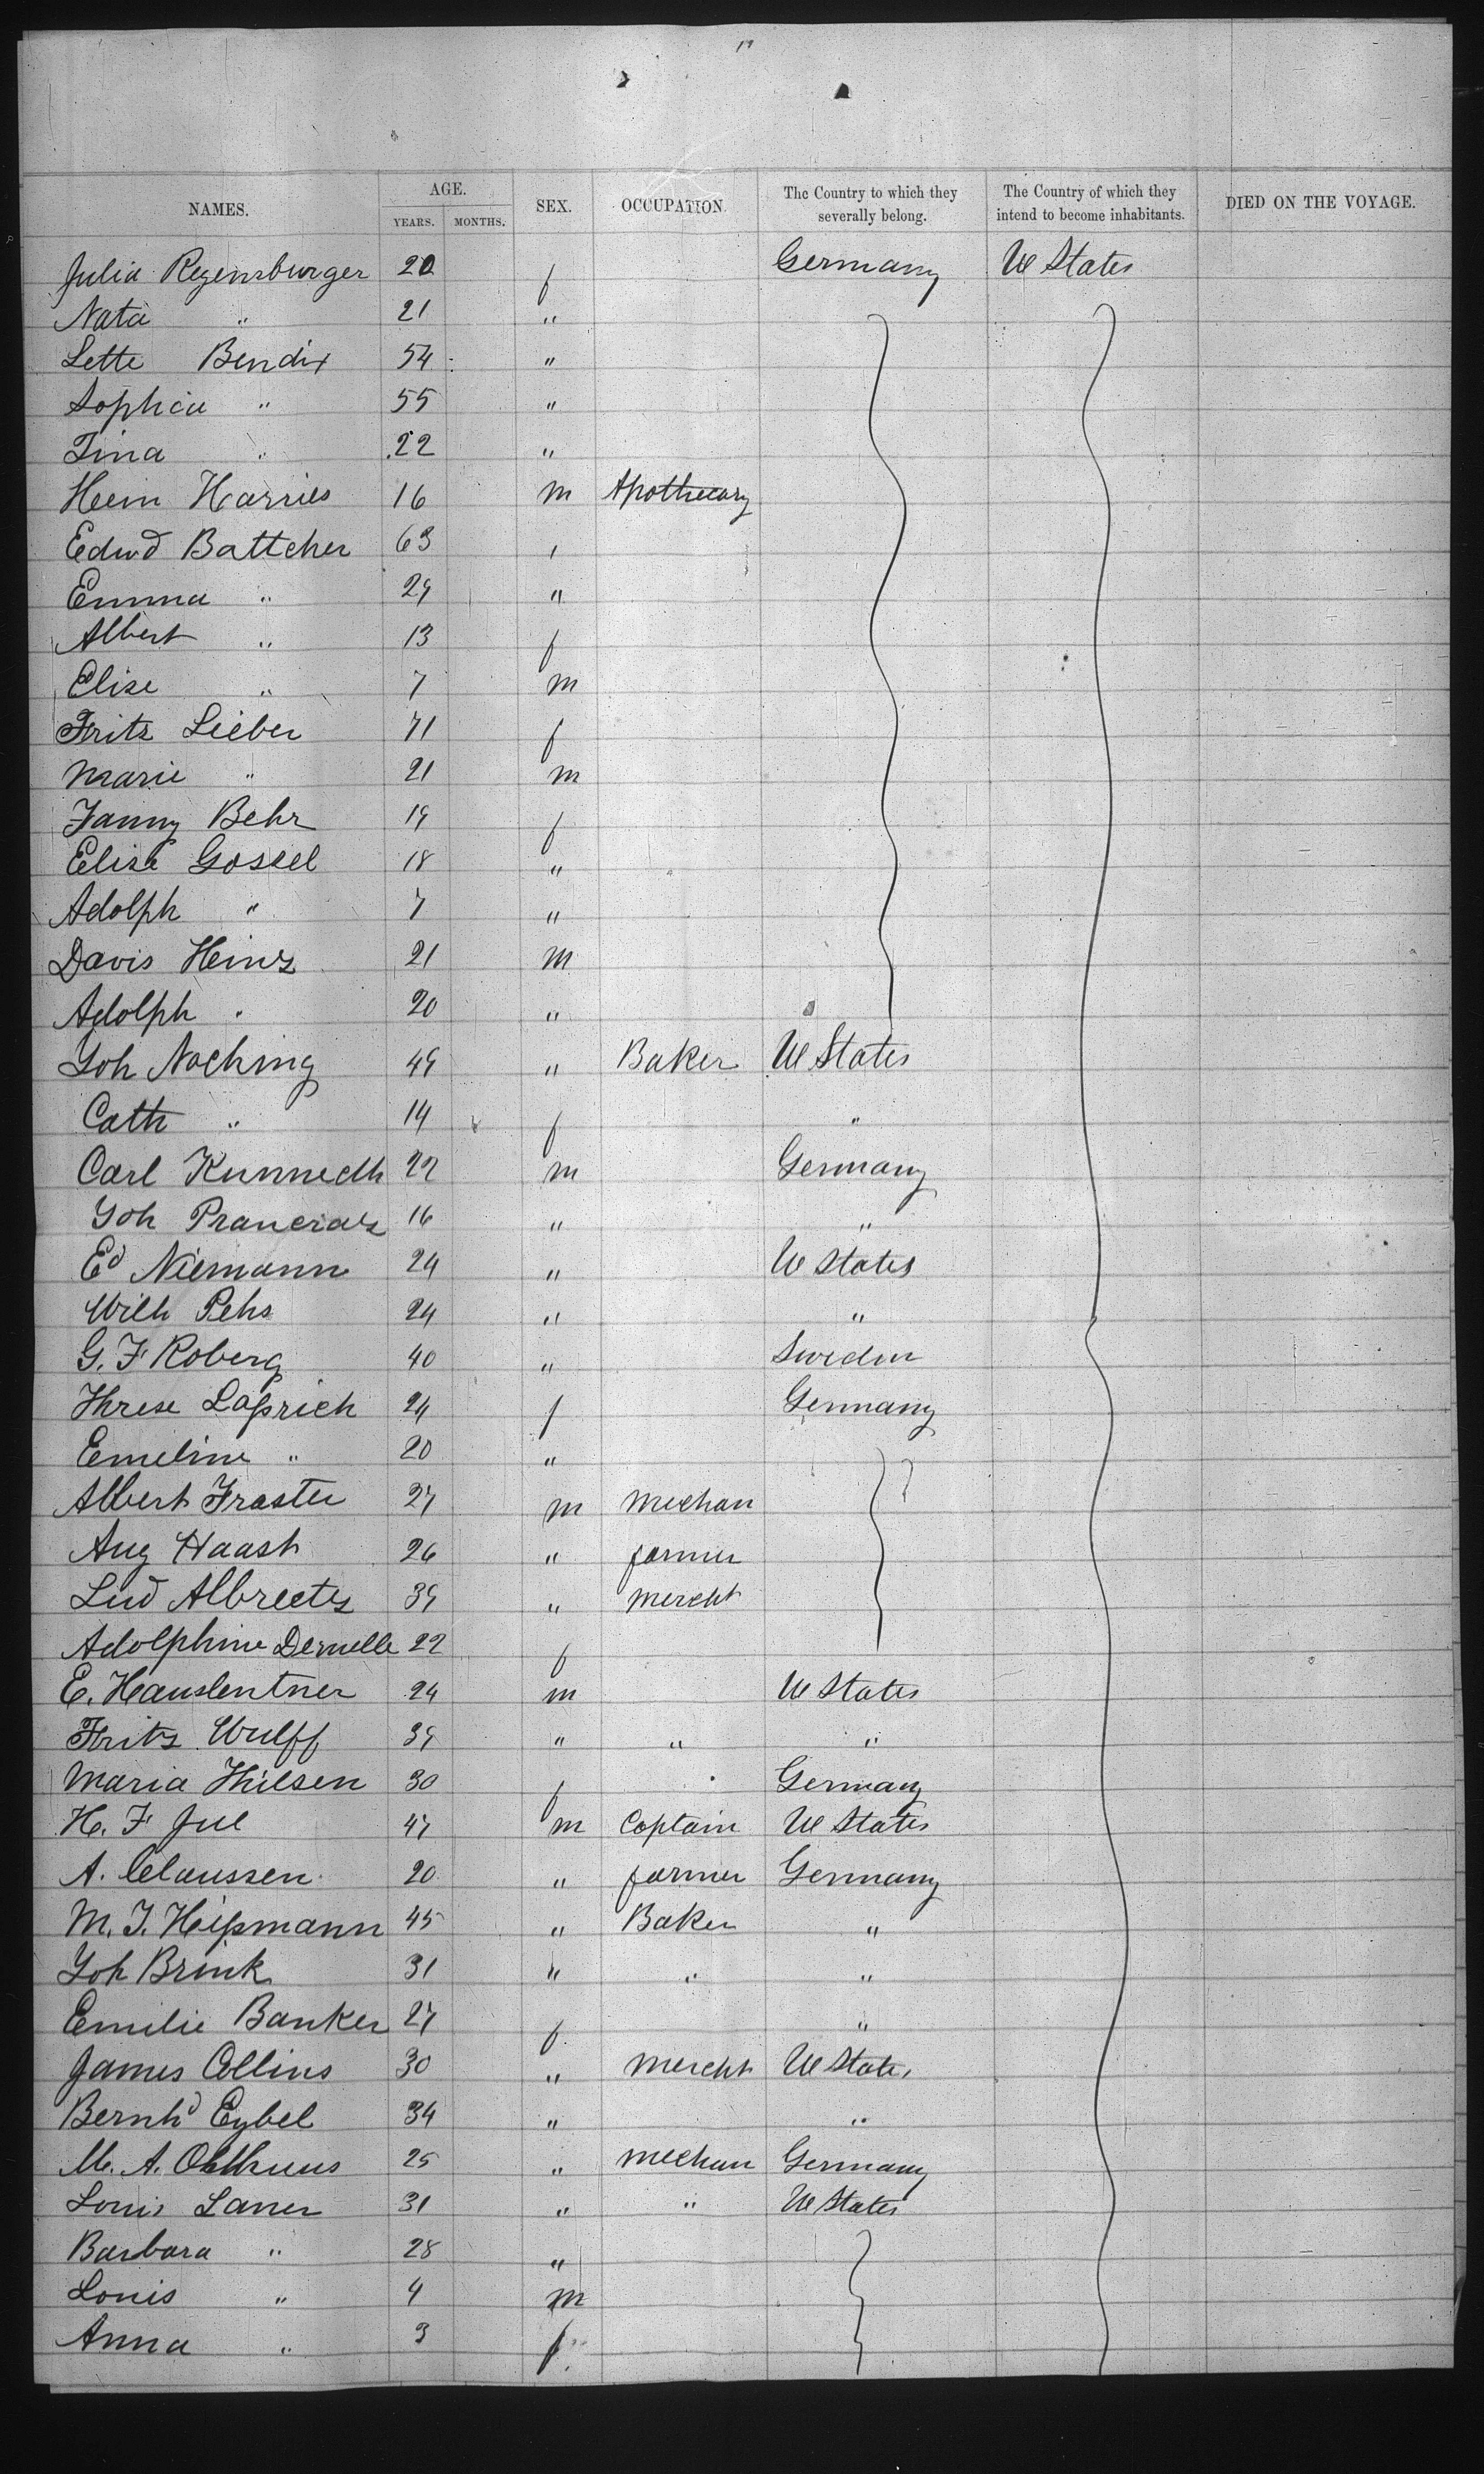 NAMES. AGE. YEARS. MONTHS. SEX. OCCUPATION. The Country to which they severally belong. The Country of which they intend to become inhabitants. DIED ON THE VOYAGE.
Julia Regensburger 20 f Germany U States
Nata " 21 "
Lette Bendix 54 "
Sophia " 55 "
Tina " 22 "
Hein Harries 16 m Apothecary
Edwd Battcher 63 "
Emma " 29 "
Albert " 13 f
Elise " 7 m
Fritz Lieber 71 f
Marie " 21 m
Fanny Behr 19 f
Elise Gossel 18 "
Adolph " 7 "
Davis Heinz 21 m
Adolph " 20 "
Joh Noching 49 " Baker U States
Cath " 14 f "
Carl Kunnecth 22 m Germany
Joh Prancraz 16 " "
Ed Niemann 24 " U States
Wilh Pehs 24 " "
G. F Roberg 40 " Sweden
Threse Laßrich 24 f Germany
Emeline " 20 "
Albert Fraster 27 m mechan
Aug Haast 26 " farmer
Lud Albrectz 39 " mercht
Adolphine Dernelle 22 f
E. Hauslentner 24 m U States
Fritz Wulff 39 " " "
Maria Thilsen 30 f " Germany
H. F Jul 47 m Captain U States
A. Claussen 20 " farmer Germany
M. J. Heißmann 45 " Baker "
Joh Brink 31 " " "
Emilie Banker 27 f "
James Collins 30 " mercht U States
Bernhd Eybel 34 " "
M. A. Ohlhuus 25 " mechan Germany
Louis Laner 31 " " U States
Barbara " 28 "
Louis " 4 m
Anna " 3 f